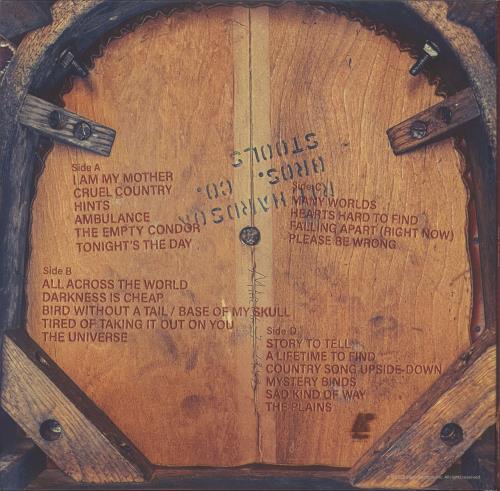 Side A
I AM MY MOTHER
CRUEL COUNTRY
HINTS
AMBULANCE
THE EMPTY CONDOR
TONIGHT'S THE DAY
Side B
ALL ACROSS THE WORLD
DARKNESS IS CHEAP
BIRD WITHOUT A TAIL / BASE OF MY SKULL
TIRED OF TAKING IT OUT ON YOU
THE UNIVERSE
RICHARDSON
BROS. CO.
STOOLS
Side C
MANY WORLDS
HEARTS HARD TO FIND
FALLING APART (RIGHT NOW)
PLEASE BE WRONG
Side D
STORY TO TELL
A LIFETIME TO FIND
COUNTRY SONG UPSIDE-DOWN
MYSTERY BINDS
SAD KIND OF WAY
THE PLAINS